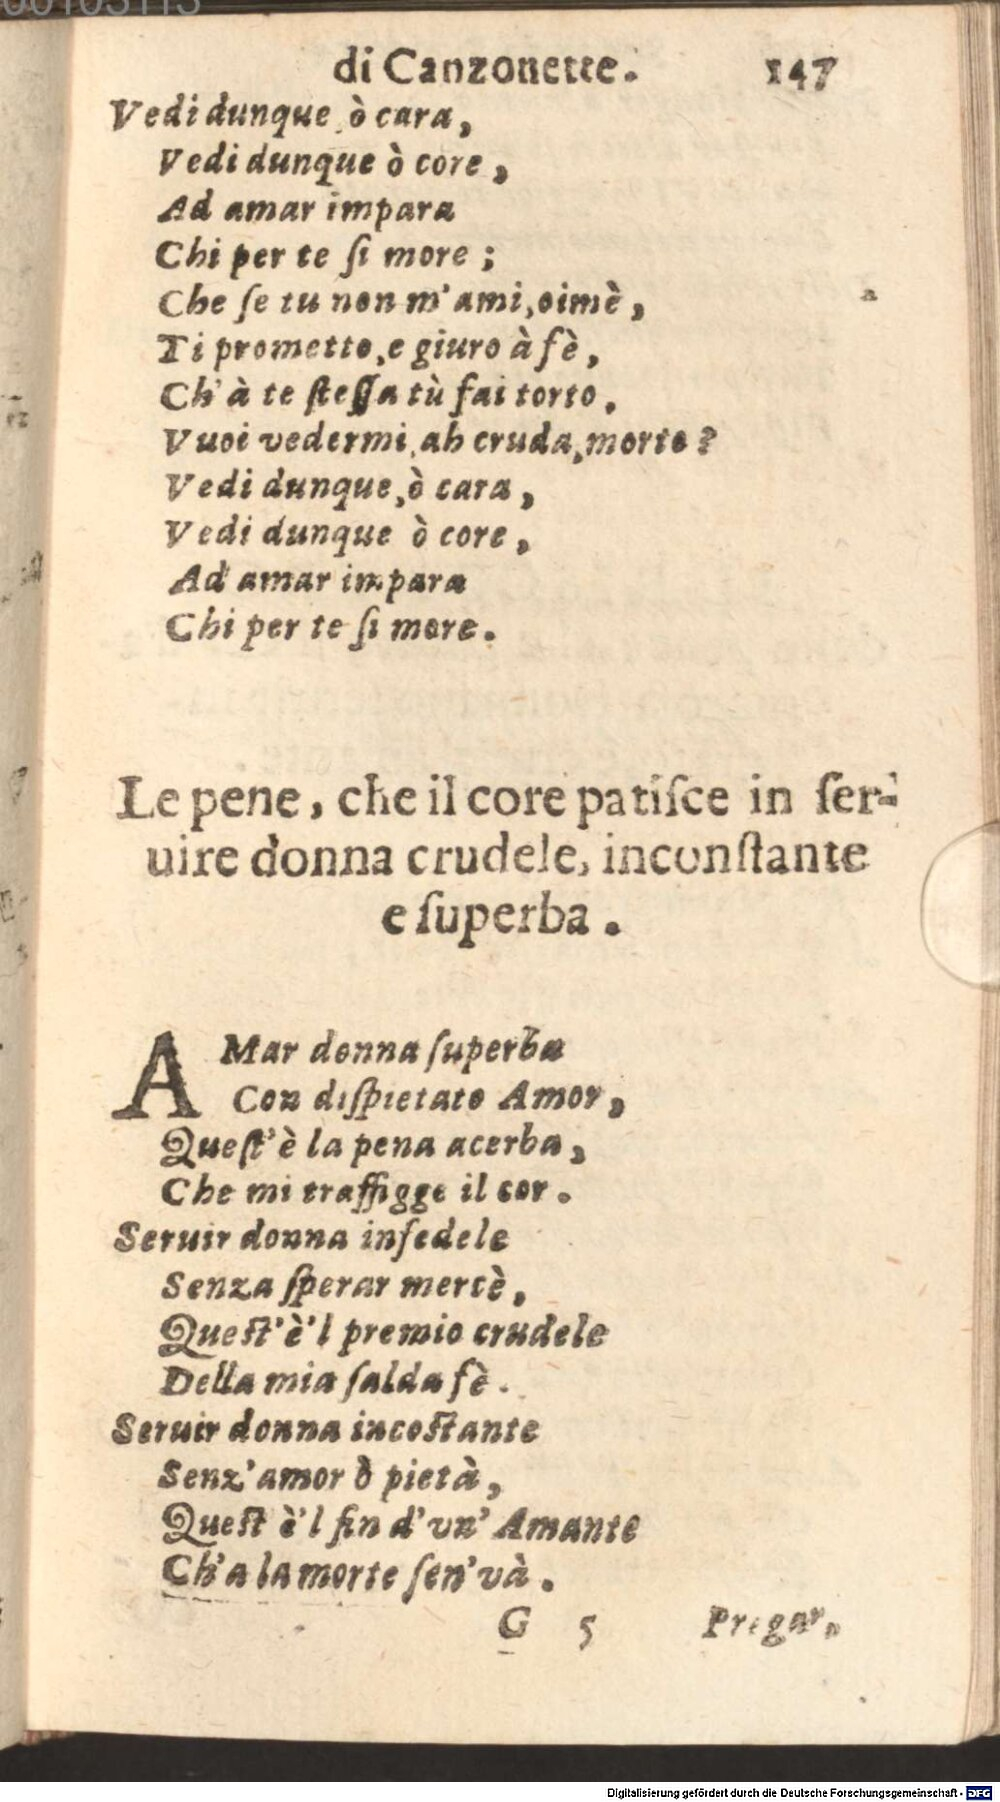 di Canzonette. 147
Vedi dunque ò cara,
Vedi dunque ò core,
Ad amar impara
Chi per te ſi more;
Che ſe tu non m'ami, oimè,
Ti prometto, e giuro à fè,
Ch'à te ſteſſa tù fai torto.
Vuoi vedermi, ah cruda, morto?
Vedi dunque, ò cara,
Vedi dunque ò core,
Ad amar impara
Chi per te ſi more.
Le pene, che il core patiſce in ſer-
uire donna crudele, inconſtante
e ſuperba.
AMar donna ſuperba
Con diſpietato Amor,
Queſt'è la pena acerba,
Che mi traffigge il cor.
Seruir donna infedele
Senza ſperar mercè,
Queſt'è'l premio crudele
Della mia ſalda fè.
Seruir donna incoſtante
Senz'amor ò pietà,
Queſt è'l fin d'vn' Amante
Ch'a la morte ſen'và.
G 5 Pregar,
Digitalisierung gefördert durch die Deutsche Forschungsgemeinschaft - DFG